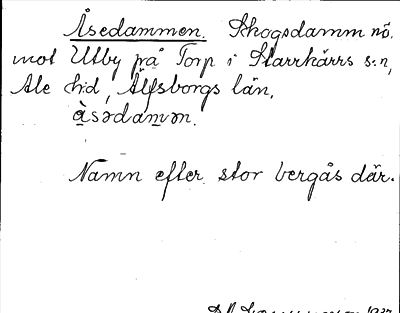 Åsedammen. Skogsdamm nö.
mot Utby på Torp i Starrkärrs s:n,
Ale hd, Älfsborgs län.
àsədamən.
Namn efter stor bergås där.